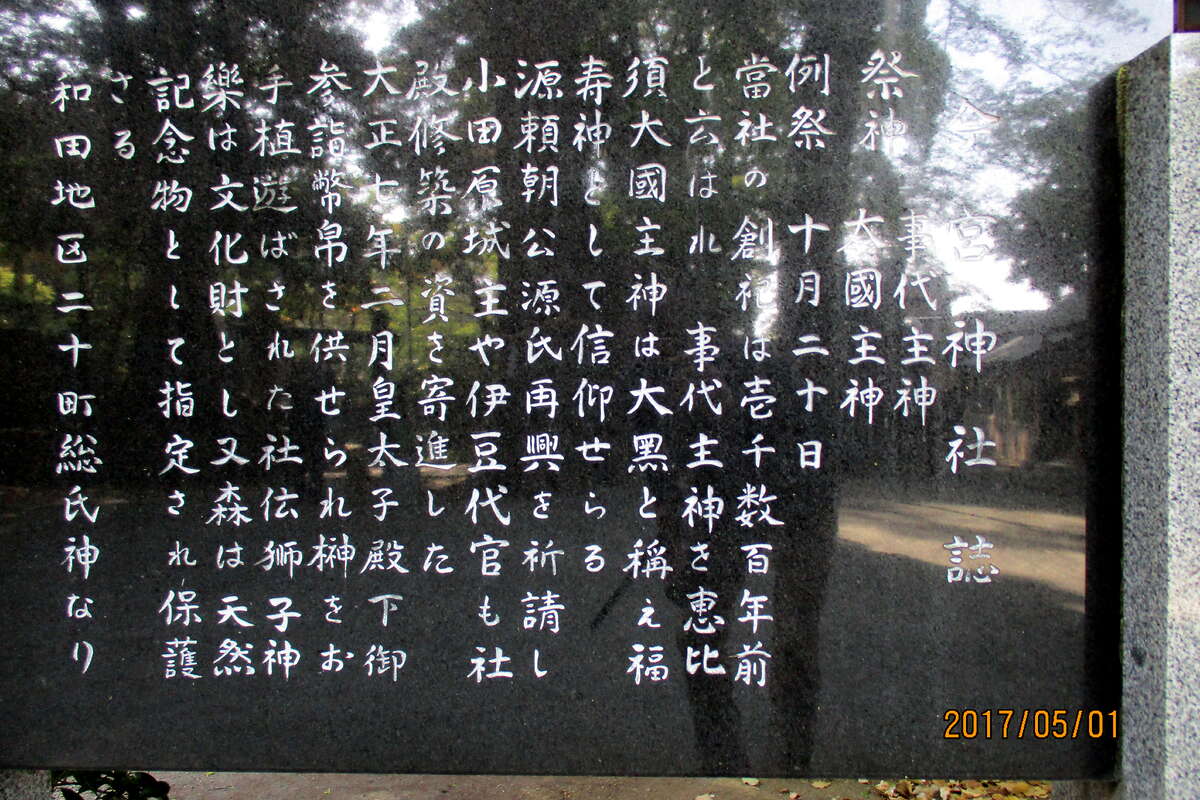 今宮神社誌
事代主神
祭神
大國主神
例祭 十月二十日
當社の創祀は壱千数百年前
と云はれ 事代主神を恵比
須大國主神は大黑と稱え福
寿神として信仰せらる
源頼朝公源氏再興を祈請し
小田原城主や伊豆代官も社
殿修築の資を寄進した
大正七年二月皇太子殿下御
参詣幣帛を供せられ榊をお
手植遊ばされた社伝獅子神
樂は文化財とし又森は天然
記念物として指定され保護
さる
和田地区二十町総氏神なり
2017/05/01